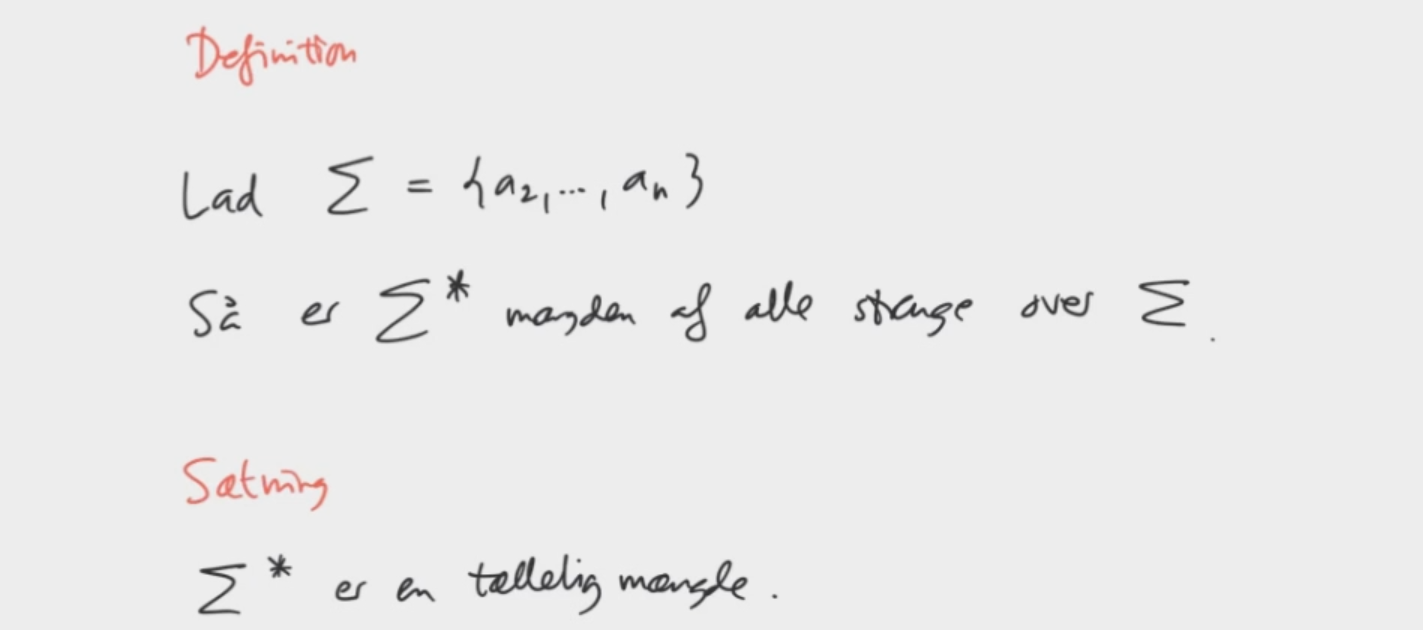 Definition
Lad Σ = {a₂,...,aₙ}
Så er Σ* mængden af alle strenge over Σ.
Sætning
Σ* er en tællelig mængde.